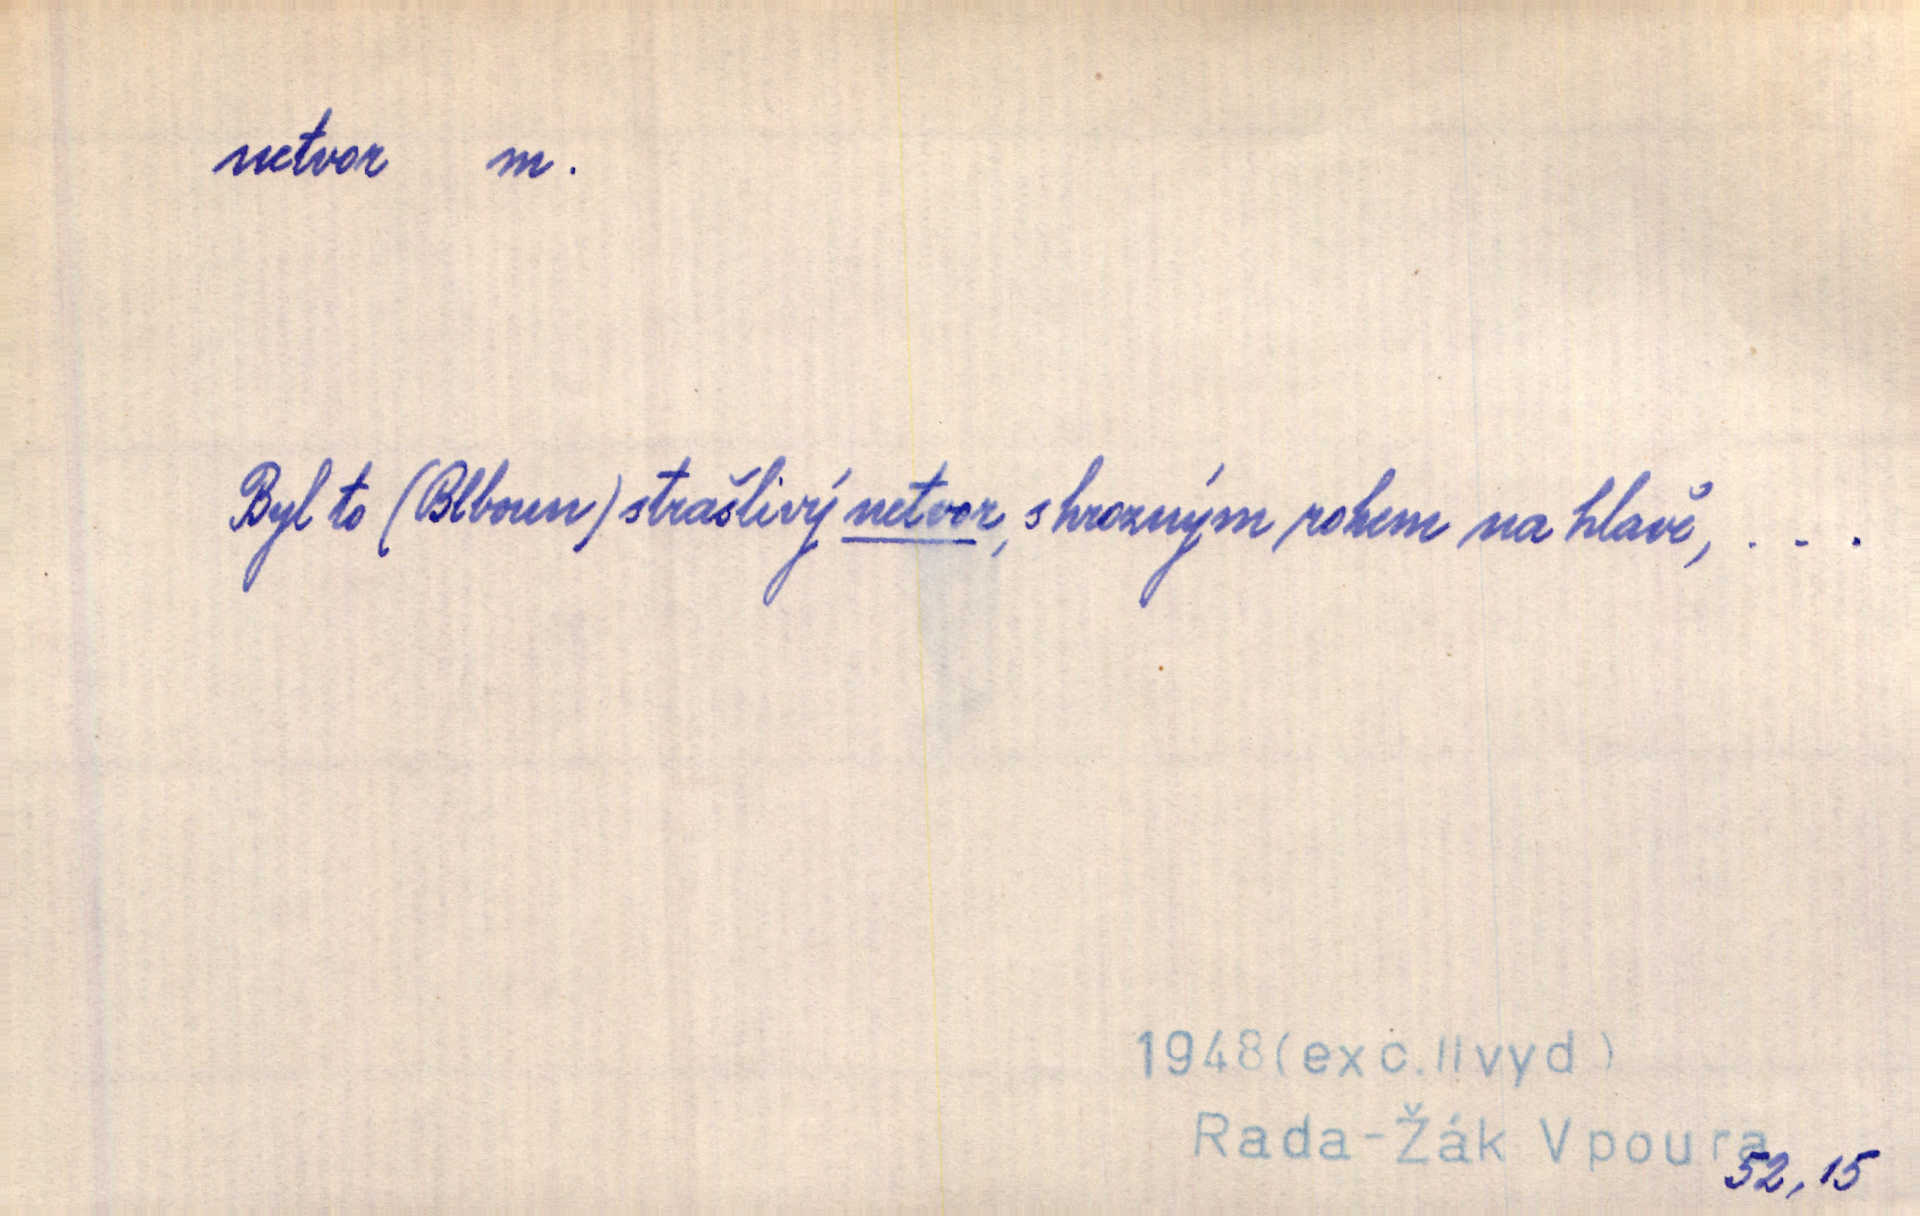 netvor m.
Byl to (Blboun) strašlivý netvor, s hrozným rohem na hlavě, . . .
1948(exc.IIvyd)
Rada-Žák Vpoura
52,15